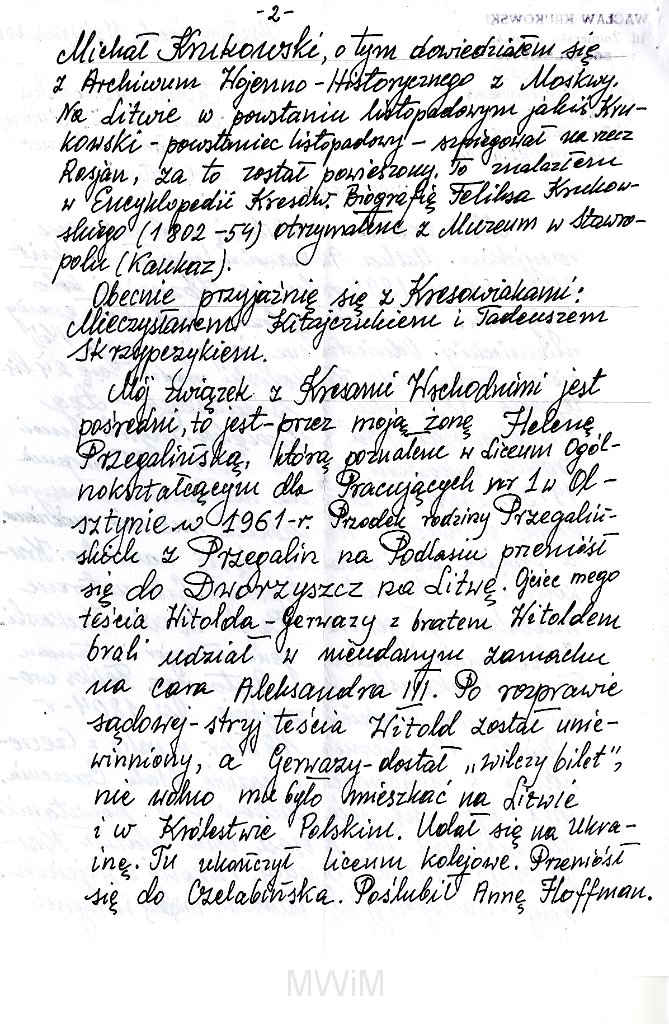 -2-
Michał Krukowski, o tym dowiedziałem się
z Archiwum Wojenno-Historycznego z Moskwy.
Na Litwie w powstaniu listopadowym jakiś Kru-
kowski - powstaniec listopadowy - szpiegował na rzecz
Rosjan, za to został powieszony. To znalazłem
w Encyklopedii Kresów. Biografię Feliksa Krukow-
skiego (1802-54) otrzymałem z Muzeum w Stawro-
polu (Kaukaz).
Obecnie przyjaźnię się z Kresowiakami:
Mieczysławem Kitajczukiem i Tadeuszem
Skrzypczykiem.
Mój związek z Kresami Wschodnimi jest
pośredni, to jest - przez moją żonę Helenę
Przegalińską, którą poznałem w Liceum Ogól-
nokształcącym dla Pracujących nr 1 w Ol-
sztynie w 1961-r. Przodek rodziny Przegaliń-
skich z Przegalin na Podlasiu przeniósł
się do Dworzyszcz na Litwę. Ojciec mego
teścia Witolda - Gerwazy z bratem Witoldem
brali udział w nieudanym zamachu
na cara Aleksandra III. Po rozprawie
sądowej - stryj teścia Witold został unie-
winniony, a Gerwazy - dostał „wilczy bilet",
nie wolno mu było mieszkać na Litwie
i w Królestwie Polskim. Udał się na Ukra-
inę. Tu ukończył liceum kolejowe. Przeniósł
się do Czelabińska. Poślubił Annę Hoffman.
WACŁAW KRUKOWSKI
MWiM